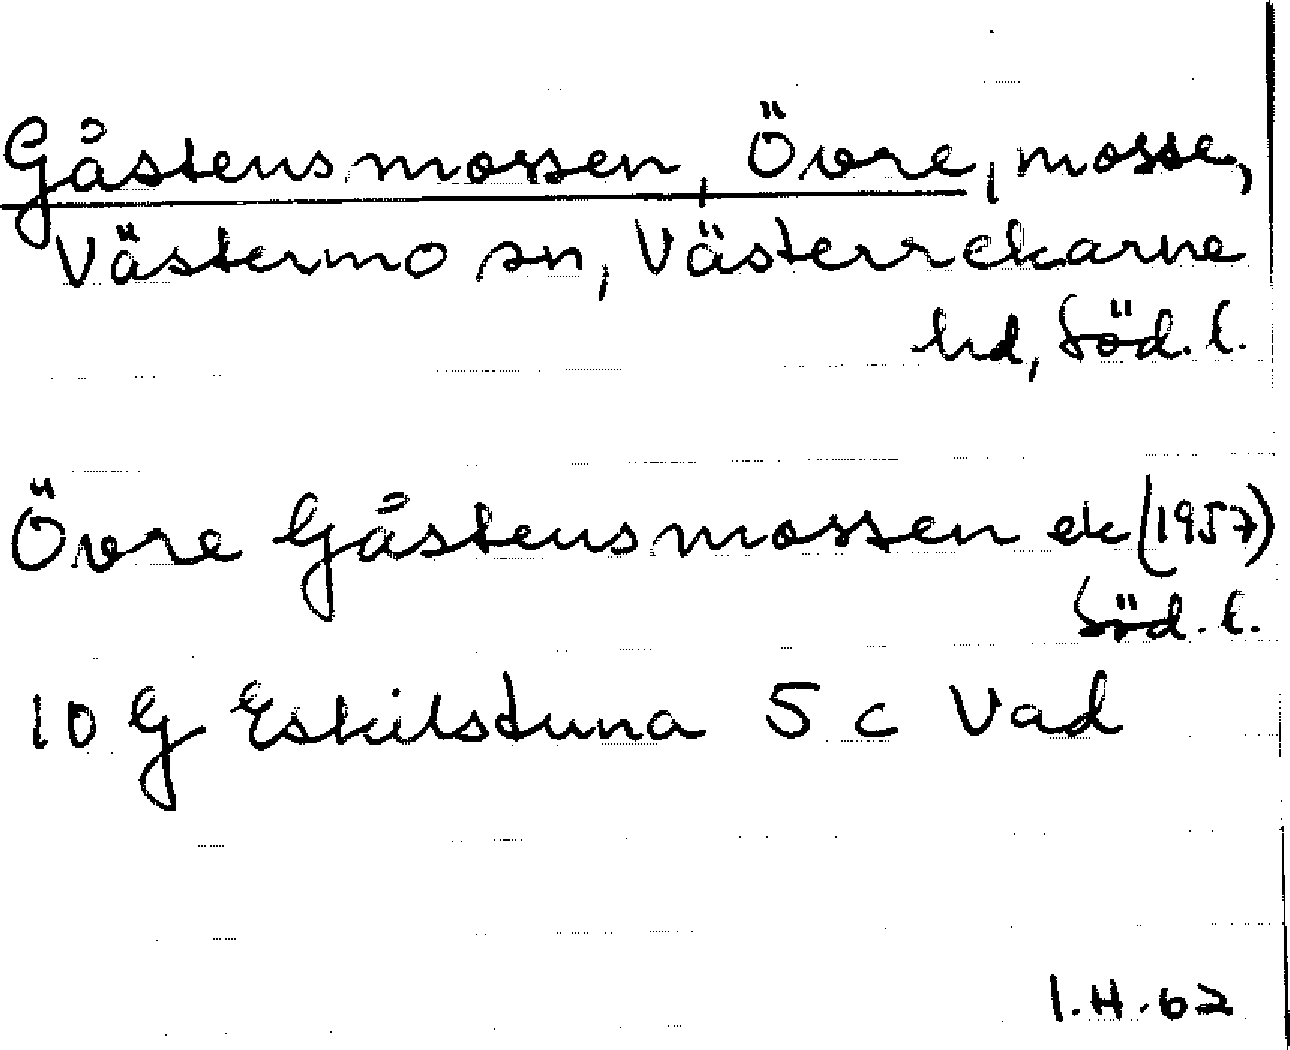 Gåstensmossen, Övre, mosse,
Västermo sn, Västerrekarne
hd, Söd. l.
Övre Gåstensmossen ek (1957)
Söd. l.
10 G Eskilstuna 5 c Vad
I.H.62